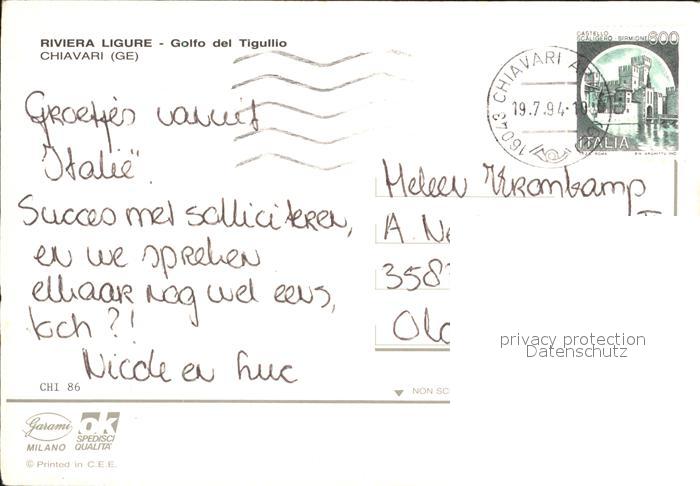 RIVIERA LIGURE - Golfo del Tigullio
CHIAVARI (GE)
Groetjes vanuit
Italië.
Succes met solliciteren,
en we spreken
elkaar nog wel eens,
toch ?!
Nicole en Luc
CHI 86
Garami
MILANO
ok
SPEDISCI
QUALITA'
© Printed in C.E.E.
CASTELLO
SCALIGERO - SIRMIONE 800
ITALIA
16043 CHIAVARI
19.7.94-10
Heleen Krombamp
A. Ne
358
Old
privacy protection
Datenschutz
NON SC